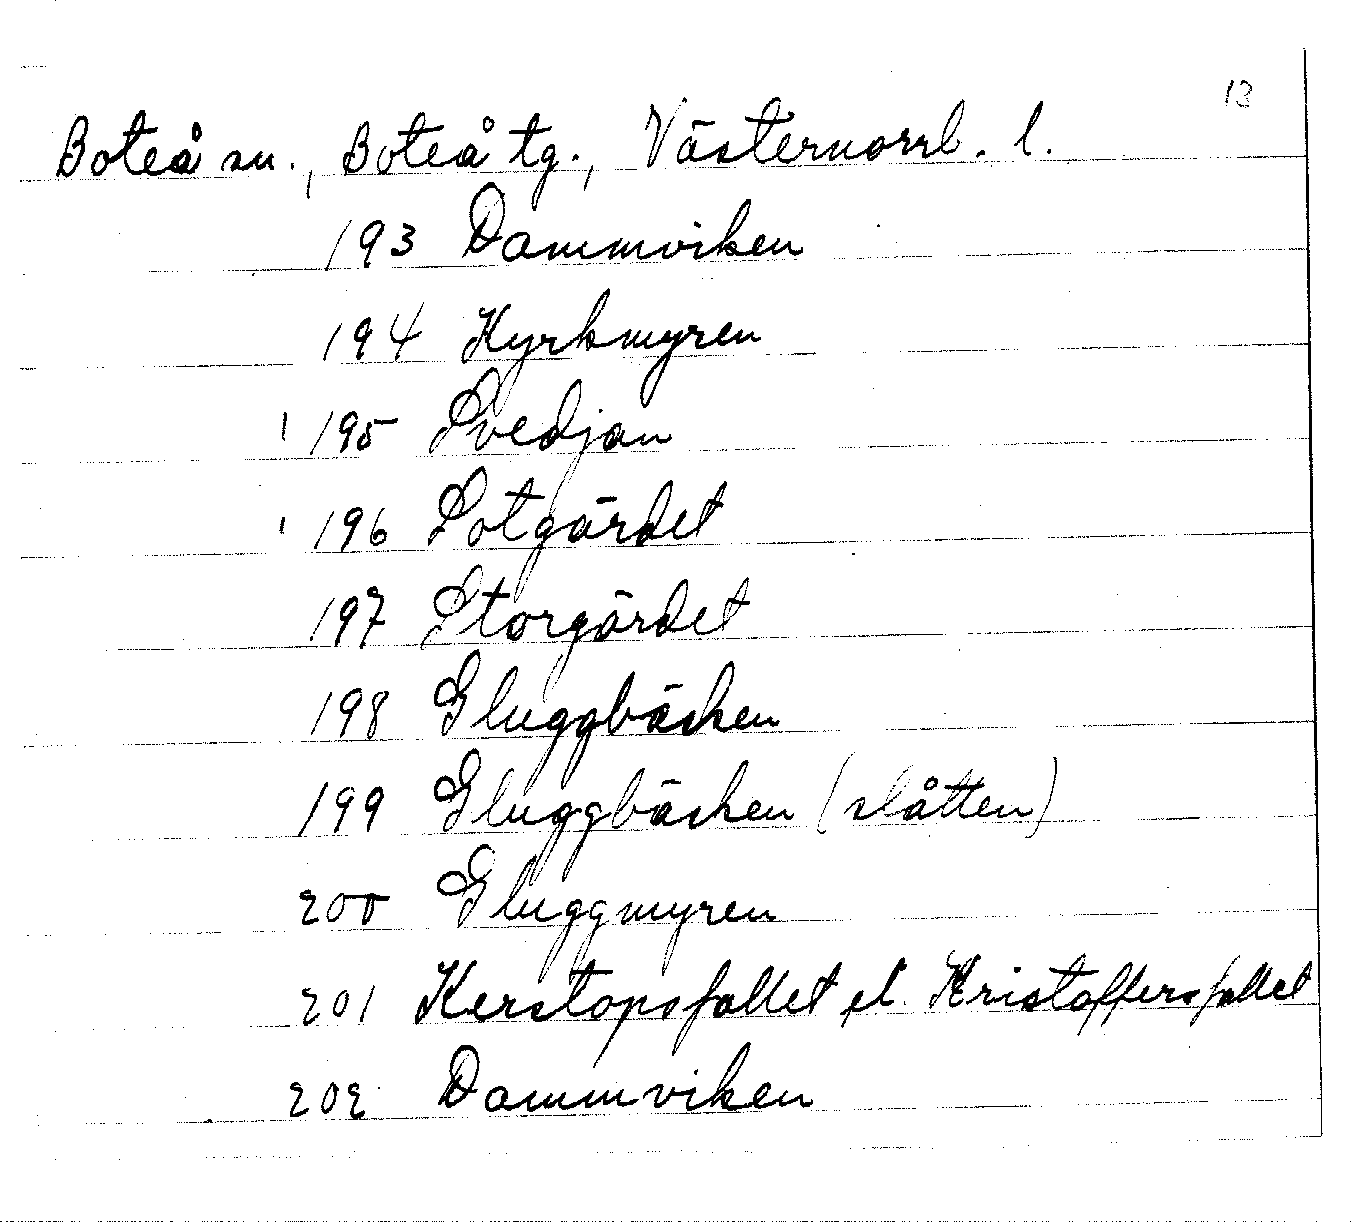 13
Boteå sn., Boteå tg., Västernorrl. l.
193 Dammviken
194 Kyrkmyren
195 Svedjan
196 Sotgärdet
197 Storgärdet
198 Gluggbäcken
199 Gluggbäcken (slåtten)
200 Gluggmyren
201 Kerstopsfallet el. Kristoffersfallet
202 Dammviken